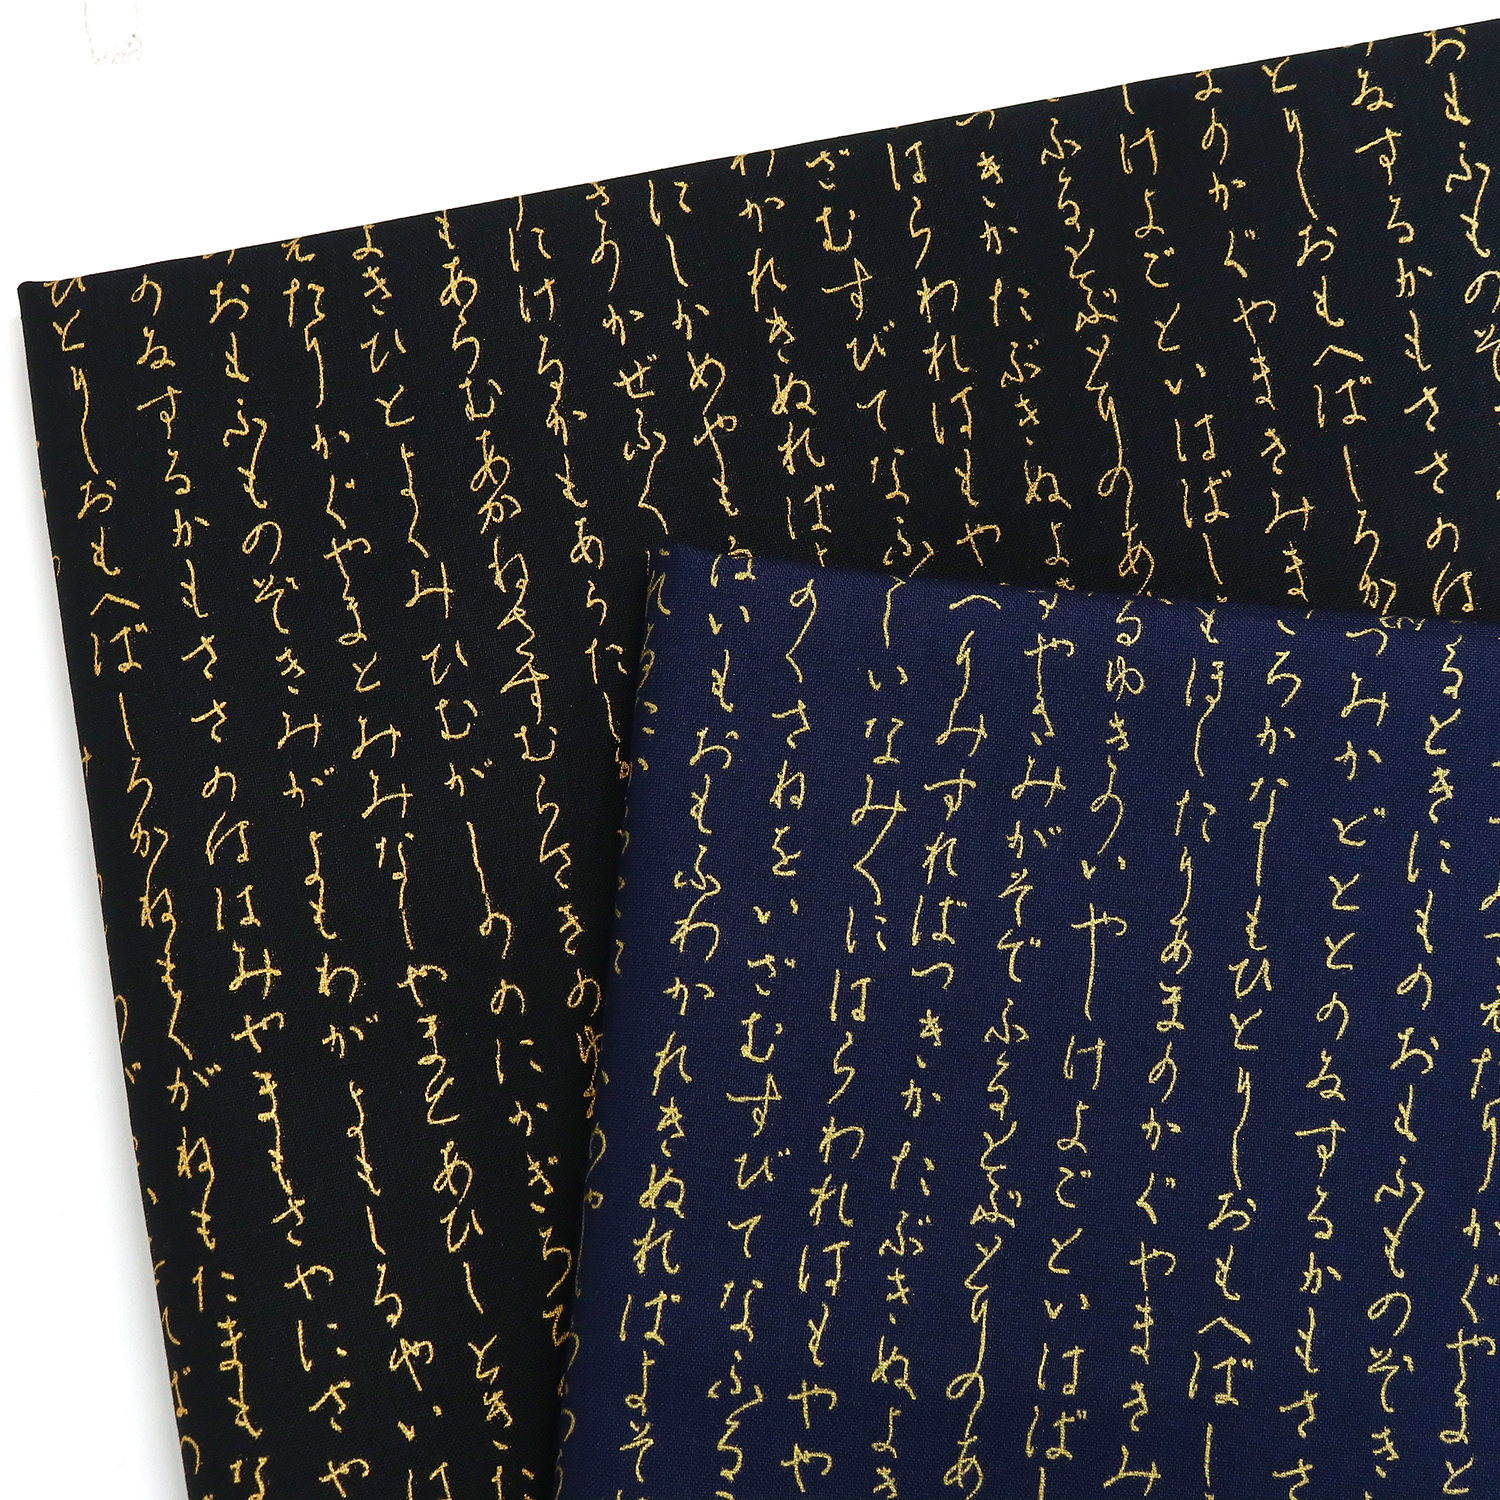 おもふものぞ
ゐするかもささのは
とりしおもへばしろか
まのかぐやまきみま
しけよごといはばし
ふるとぶとりのあ
きかたぶきぬよ
はらわれはもや
ざむすびてなふ
わかれきぬれば
にしかめやも
さのかぜふく
しにけるかもあらたし
もあらむあかねさすむらさきのゆ
よきひとよくみひむがしののにかぎろ
えたりかぐやまとみみなしやまとあひしとき
おもふものぞきみがよもわがよもしるやいは
のゐするかもささのははみやまもさやにさや
ひとりしおもへばしろかねもくがねもたまもな
たりかぐやまと
るときにものおもふものぞき
つみかどとのゐするかもささ
ころかなしもひとりしおもへばし
もほしたりあまのかぐやまきみ
るゆきのいやしけよごといはばし
やきみがそでふるとぶとりのあ
へりみすればつきかたぶきぬよき
しいなみくにはらわれはもやや
のくさねをいざむすびてなふる
はいもおもふわかれきぬればよそ